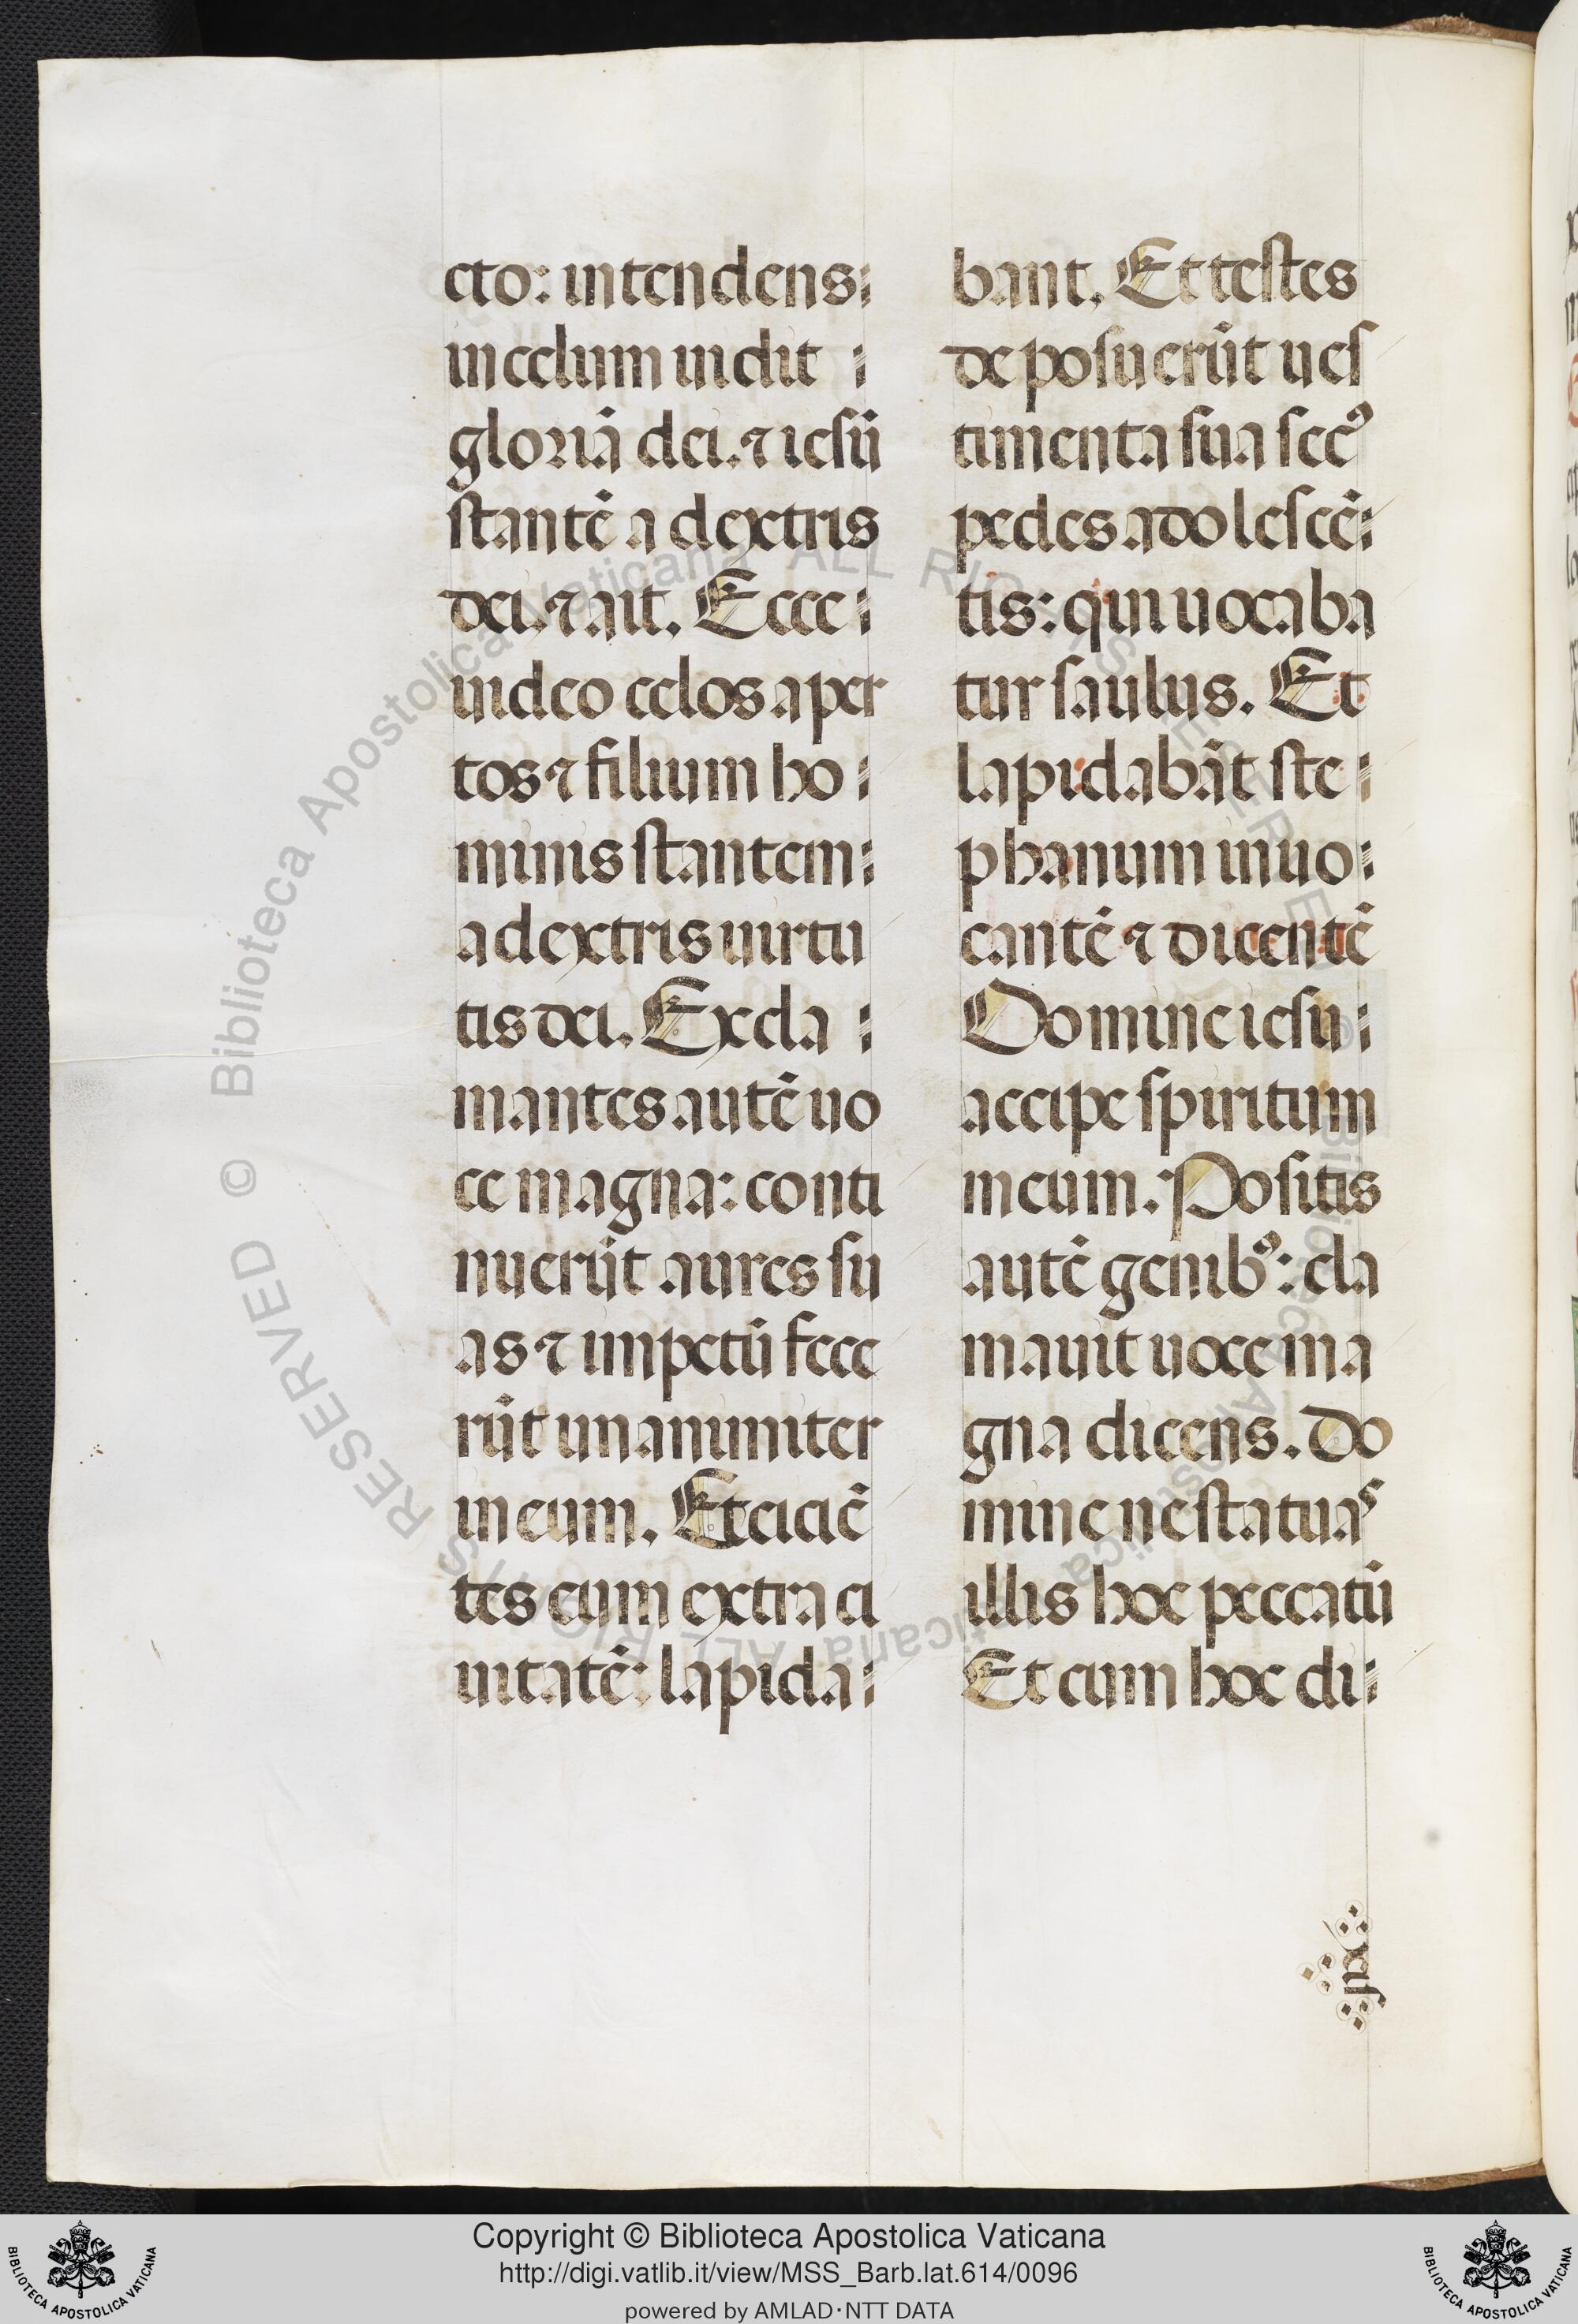 cto: intendens
in celum uidit
gloriā dei. ⁊ iesū
stantē a dextris
dei. ⁊ ait. Ecce
uideo celos aper
tos ⁊ filium ho
minis stantem
a dextris uirtu
tis dei. Excla
mantes autē uo
ce magna: conti
nuerūt aures su
as ⁊ impetū fece
rūt unanimiter
in eum. Et eiciē
tes eum extra ci
uitatē: lapida
bant. Et testes
deposuerūt ues
timenta sua secꝰ
pedes adolescē
tis: qui uocaba
tur saulus. Et
lapidabāt ste
phanum inuo
cantē ⁊ dicentē
Domine iesu
accipe spiritum
meum. Positis
autē genibꝰ: cla
mauit uoce ma
gna dicens. Do
mine ne statuas
illis hoc peccatū
Et cum hoc di
© Biblioteca Apostolica Vaticana ALL RIGHTS RESERVED
Copyright © Biblioteca Apostolica Vaticana
http://digi.vatlib.it/view/MSS_Barb.lat.614/0096
powered by AMLAD·NTT DATA
BIBLIOTECA APOSTOLICA VATICANA
BIBLIOTECA APOSTOLICA VATICANA